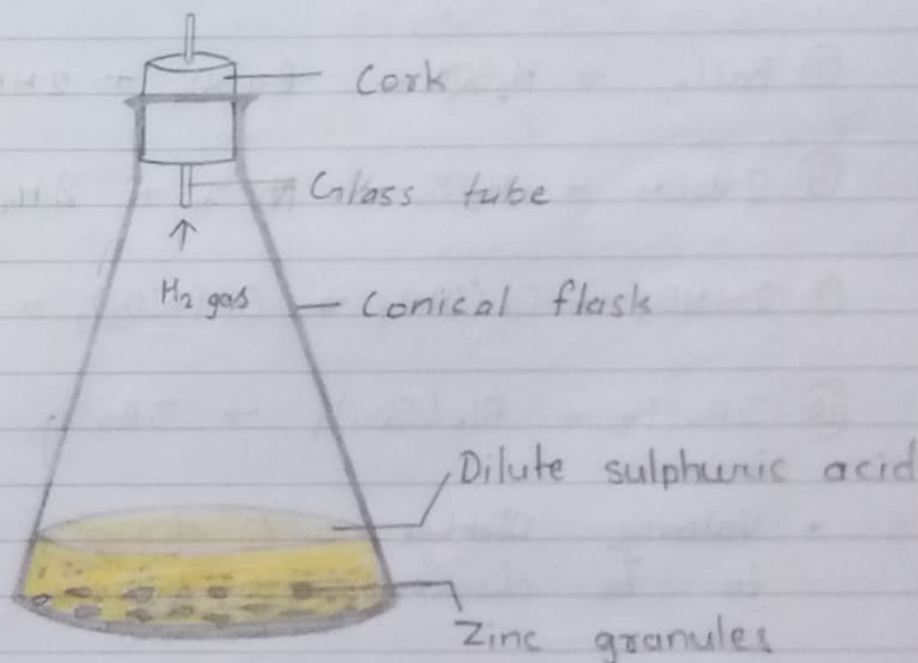 Cork
Glass tube
H₂ gas
Conical flask
Dilute sulphuric acid
Zinc granules